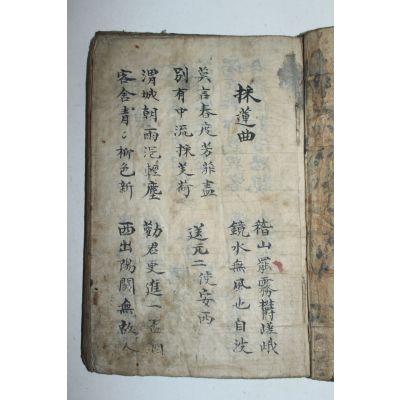 採蓮曲
稽山罷霧欝嵯峨
鏡水無風也自波
莫言春度芳菲盡
別有中流採芰荷
送元二使安西
渭城朝雨浥輕塵
客舍青〻柳色新
勸君更進一盃酒
西出陽關無故人